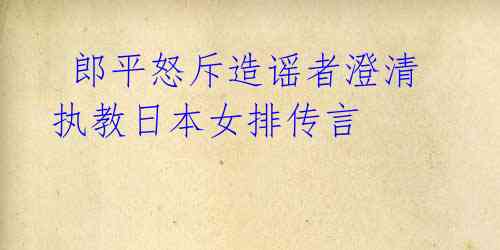 郎平怒斥造谣者澄清
执教日本女排传言